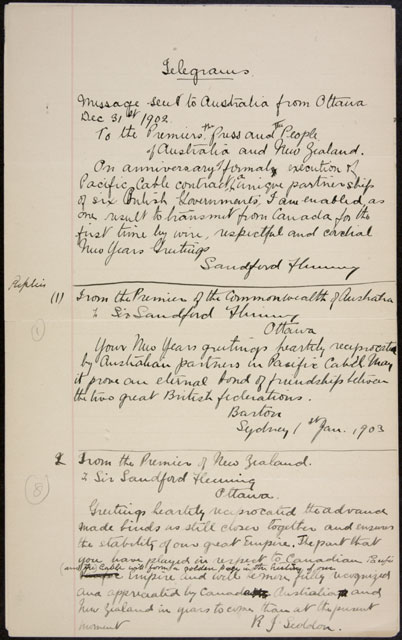 Telegrams
Message sent to Australia from Ottawa
Dec 31st 1902.
To the Premiers, the Press and the People
of Australia and New Zealand.
On anniversary formal execution of
Pacific Cable contract, a unique partnership
of six British Governments, I am enabled, as
one result to transmit from Canada for the
first time by wire, respectful and cordial
New Years Greetings
Sandford Fleming
Replies
(1) From the Premier of the Commonwealth of Australia
to Sir Sandford Fleming
(1)
Ottawa
Your New Years greetings heartily reciprocated
by Australian partners in Pacific Cable. May
it prove an eternal bond of friendship between
the two great British federations.
Barton
Sydney 1st Jan. 1903
2 From the Premier of New Zealand.
to Sir Sandford Fleming
(8)
Ottawa.
Greetings heartily reciprocated the advance
made binds us still closer together and ensures
the stability of our great Empire. The part that
you have played in respect to Canadian Pacific
and the Cable will form a golden page in the history of our
Empire and will be more fully recognized
and appreciated by Canada Australia and
New Zealand in years to come than at the present
moment
R. J. Seddon.